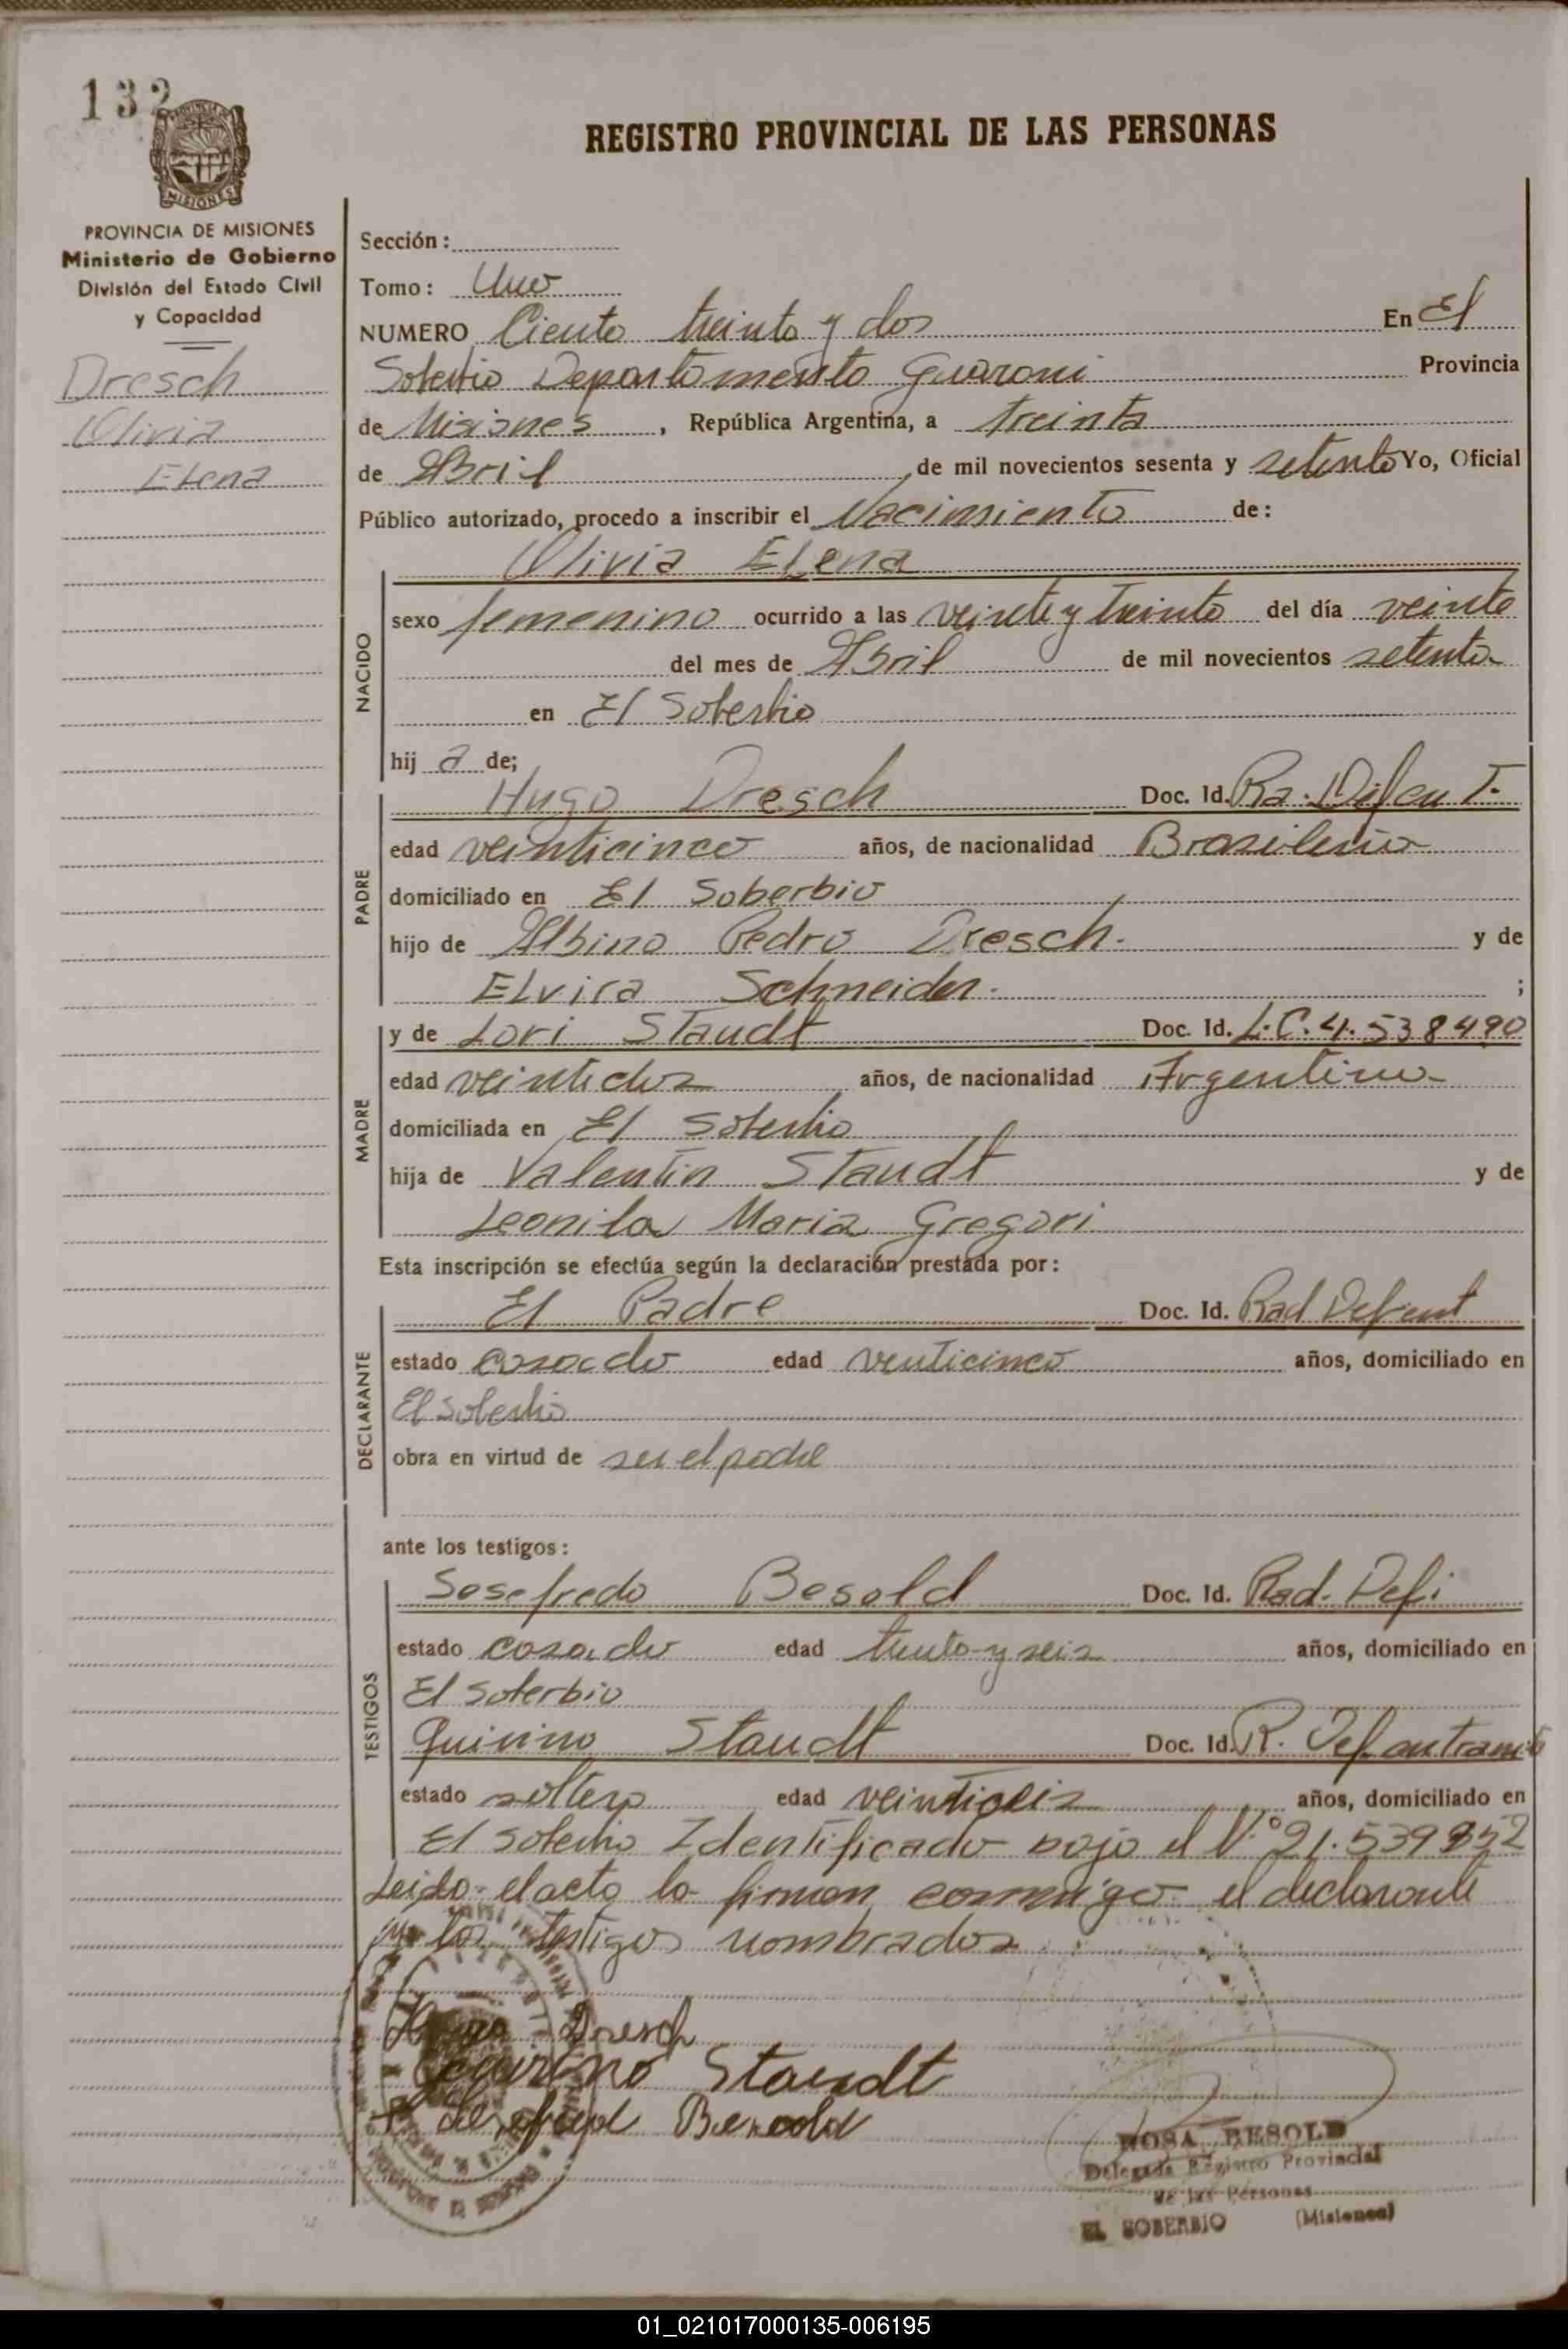 132
REGISTRO PROVINCIAL DE LAS PERSONAS
PROVINCIA DE
MISIONES
PROVINCIA DE MISIONES
Ministerio de Gobierno
División del Estado Civil
y Capacidad
Dresch
Olivia
Elena
Sección:
Tomo: Uno
NUMERO Ciento treinta y dos En El
Soberbio Departamento Guarani Provincia
de Misiones, República Argentina, a treinta
de Abril de mil novecientos sesenta y setenta Yo, Oficial
Público autorizado, procedo a inscribir el Nacimiento de:
Olivia Elena
NACIDO
sexo femenino ocurrido a las veinte y treinta del día veinte
del mes de Abril de mil novecientos setenta
en El Soberbio
hij a de;
PADRE
Hugo Dresch Doc. Id. Ra. Difen T.
edad veinticinco años, de nacionalidad Brasileño
domiciliado en El Soberbio
hijo de Albino Pedro Dresch. y de
Elvira Schneider. ;
MADRE
y de Lori Staudt Doc. Id. L.C. 4.538490
edad veintidos años, de nacionalidad Argentina
domiciliada en El Soberbio
hija de Valentin Staudt y de
Leonila Maria Gregori
Esta inscripción se efectúa según la declaración prestada por:
DECLARANTE
El Padre Doc. Id. Rad Defent
estado casado edad venticinco años, domiciliado en
El Soberbio
obra en virtud de ser el padre
ante los testigos:
TESTIGOS
Sesefredo Besold Doc. Id. Rad. Defi
estado casado edad treinta y seis años, domiciliado en
El Soberbio
Quirino Staudt Doc. Id. R. Def. en tramite
estado soltero edad veintiseis años, domiciliado en
El Soberbio Identificado bajo el N.° 21.539852
Leido el acto lo firman conmigo el declarante
y los testigos nombrados
Hugo Dresch
Quirino Staudt
Besold
ROSA BESOLD
Delegada Registro Provincial
de las Personas
EL SOBERBIO (Misiones)
01_021017000135-006195